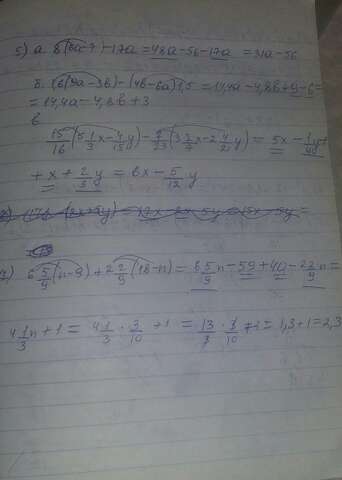 5) а 8(6a-7)-17a=48a-56-17a=31a-56
б. 1,6(9a-3b)-(4b-6a)1,5=14,4a-4,8b+9-6=
=14,4a-4,8b+3
в
15/16(5 1/3x-4/15y)-7/23(3 2/7x-2 4/21y)=5x-1/4y+
+x+2/3y=6x-5/12y
7) 6 5/9(n-9)+2 2/9(18-n)=6 5/9n-59+40-2 2/9n=
4 1/3n+1=4 1/3·3/10+1=13/3·3/10+1=1,3+1=2,3